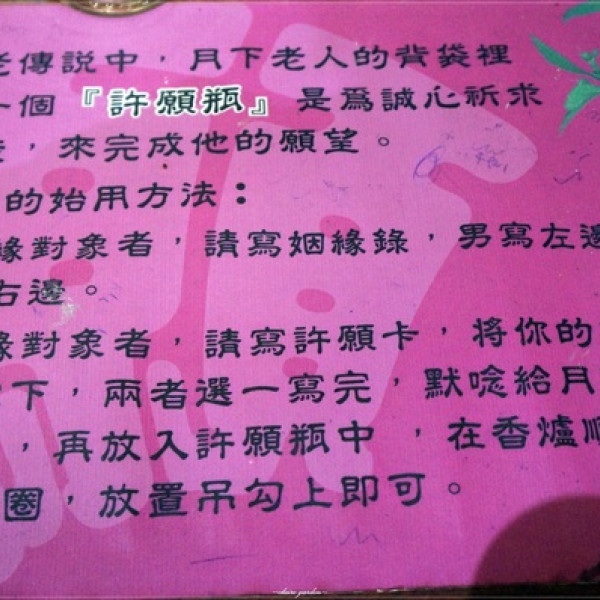 老傳說中，月下老人的背袋裡
一個『許願瓶』是爲誠心祈求
，來完成他的願望。
的始用方法：
緣對象者，請寫姻緣錄，男寫左邊
右邊。
緣對象者，請寫許願卡，將你的
下，兩者選一寫完，默唸給月
，再放入許願瓶中，在香爐順
圈，放置吊勾上即可。